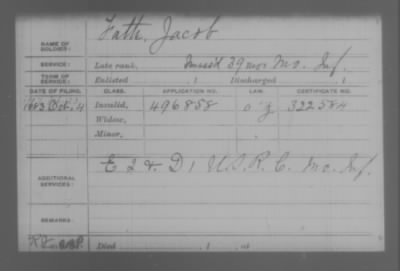 NAME OF SOLDIER: Fath, Jacob
SERVICE: Late rank, 39 Mo. Inf.
TERM OF SERVICE: Enlisted , 1 Discharged , 1
DATE OF FILING. CLASS. APPLICATION NO. LAW. CERTIFICATE NO.
1883 Oct. 4 Invalid, 496858 322584
Widow,
Minor,
ADDITIONAL SERVICES: E 2 & D 1 U.S.R.C. Mo. Inf.
REMARKS:
Died , 1 , at